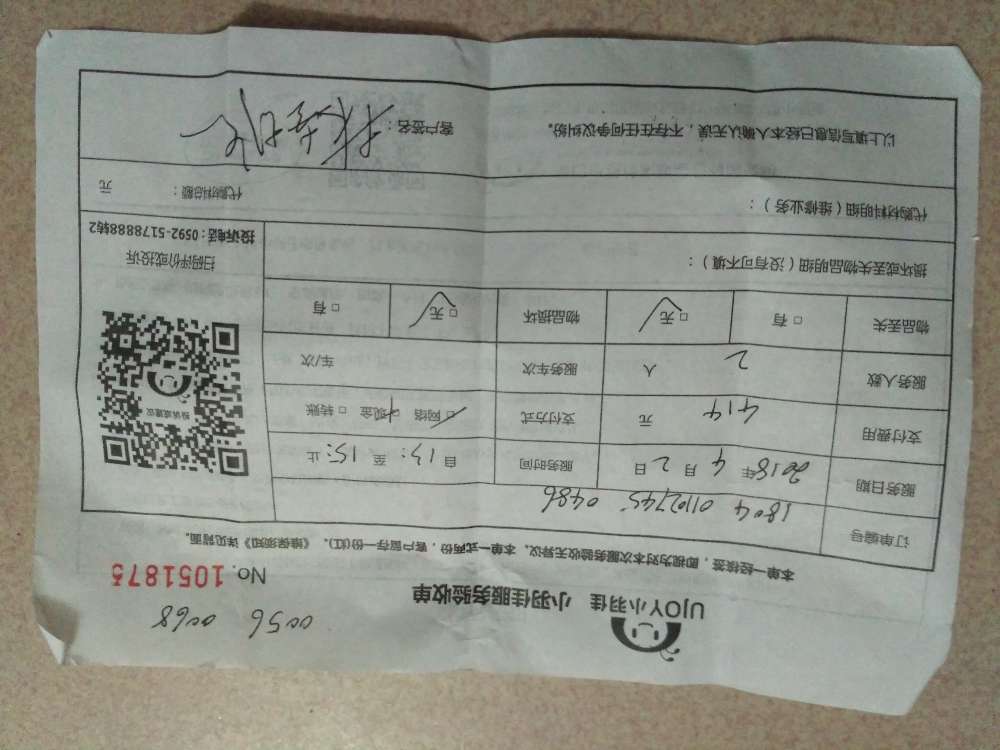 0056 0068
UJOY小羽佳 小羽佳服务验收单
No. 1051875
本单一经核签，即视为对本次服务验收无异议。本单一式两份，客户留存一份(红)，《维保须知》详见背面。
订单编号 1804 01102745 0486
服务日期 2018年 4月 2日 服务时间 自 13: 至 15: 止
支付费用 414 元 支付方式 □网络 □现金 □转账
服务人数 2 人 服务车次 车/次
物品丢失 □有 □无 物品损坏 □无 □有
投诉或建议
扫码评价或投诉
投诉电话：0592-5178888转2
损坏或丢失物品明细（没有可不填）：
代购材料明细（维修业务）： 代购材料总额： 元
以上填写信息已经本人确认无误，不存在任何争议纠纷。 客户签名：